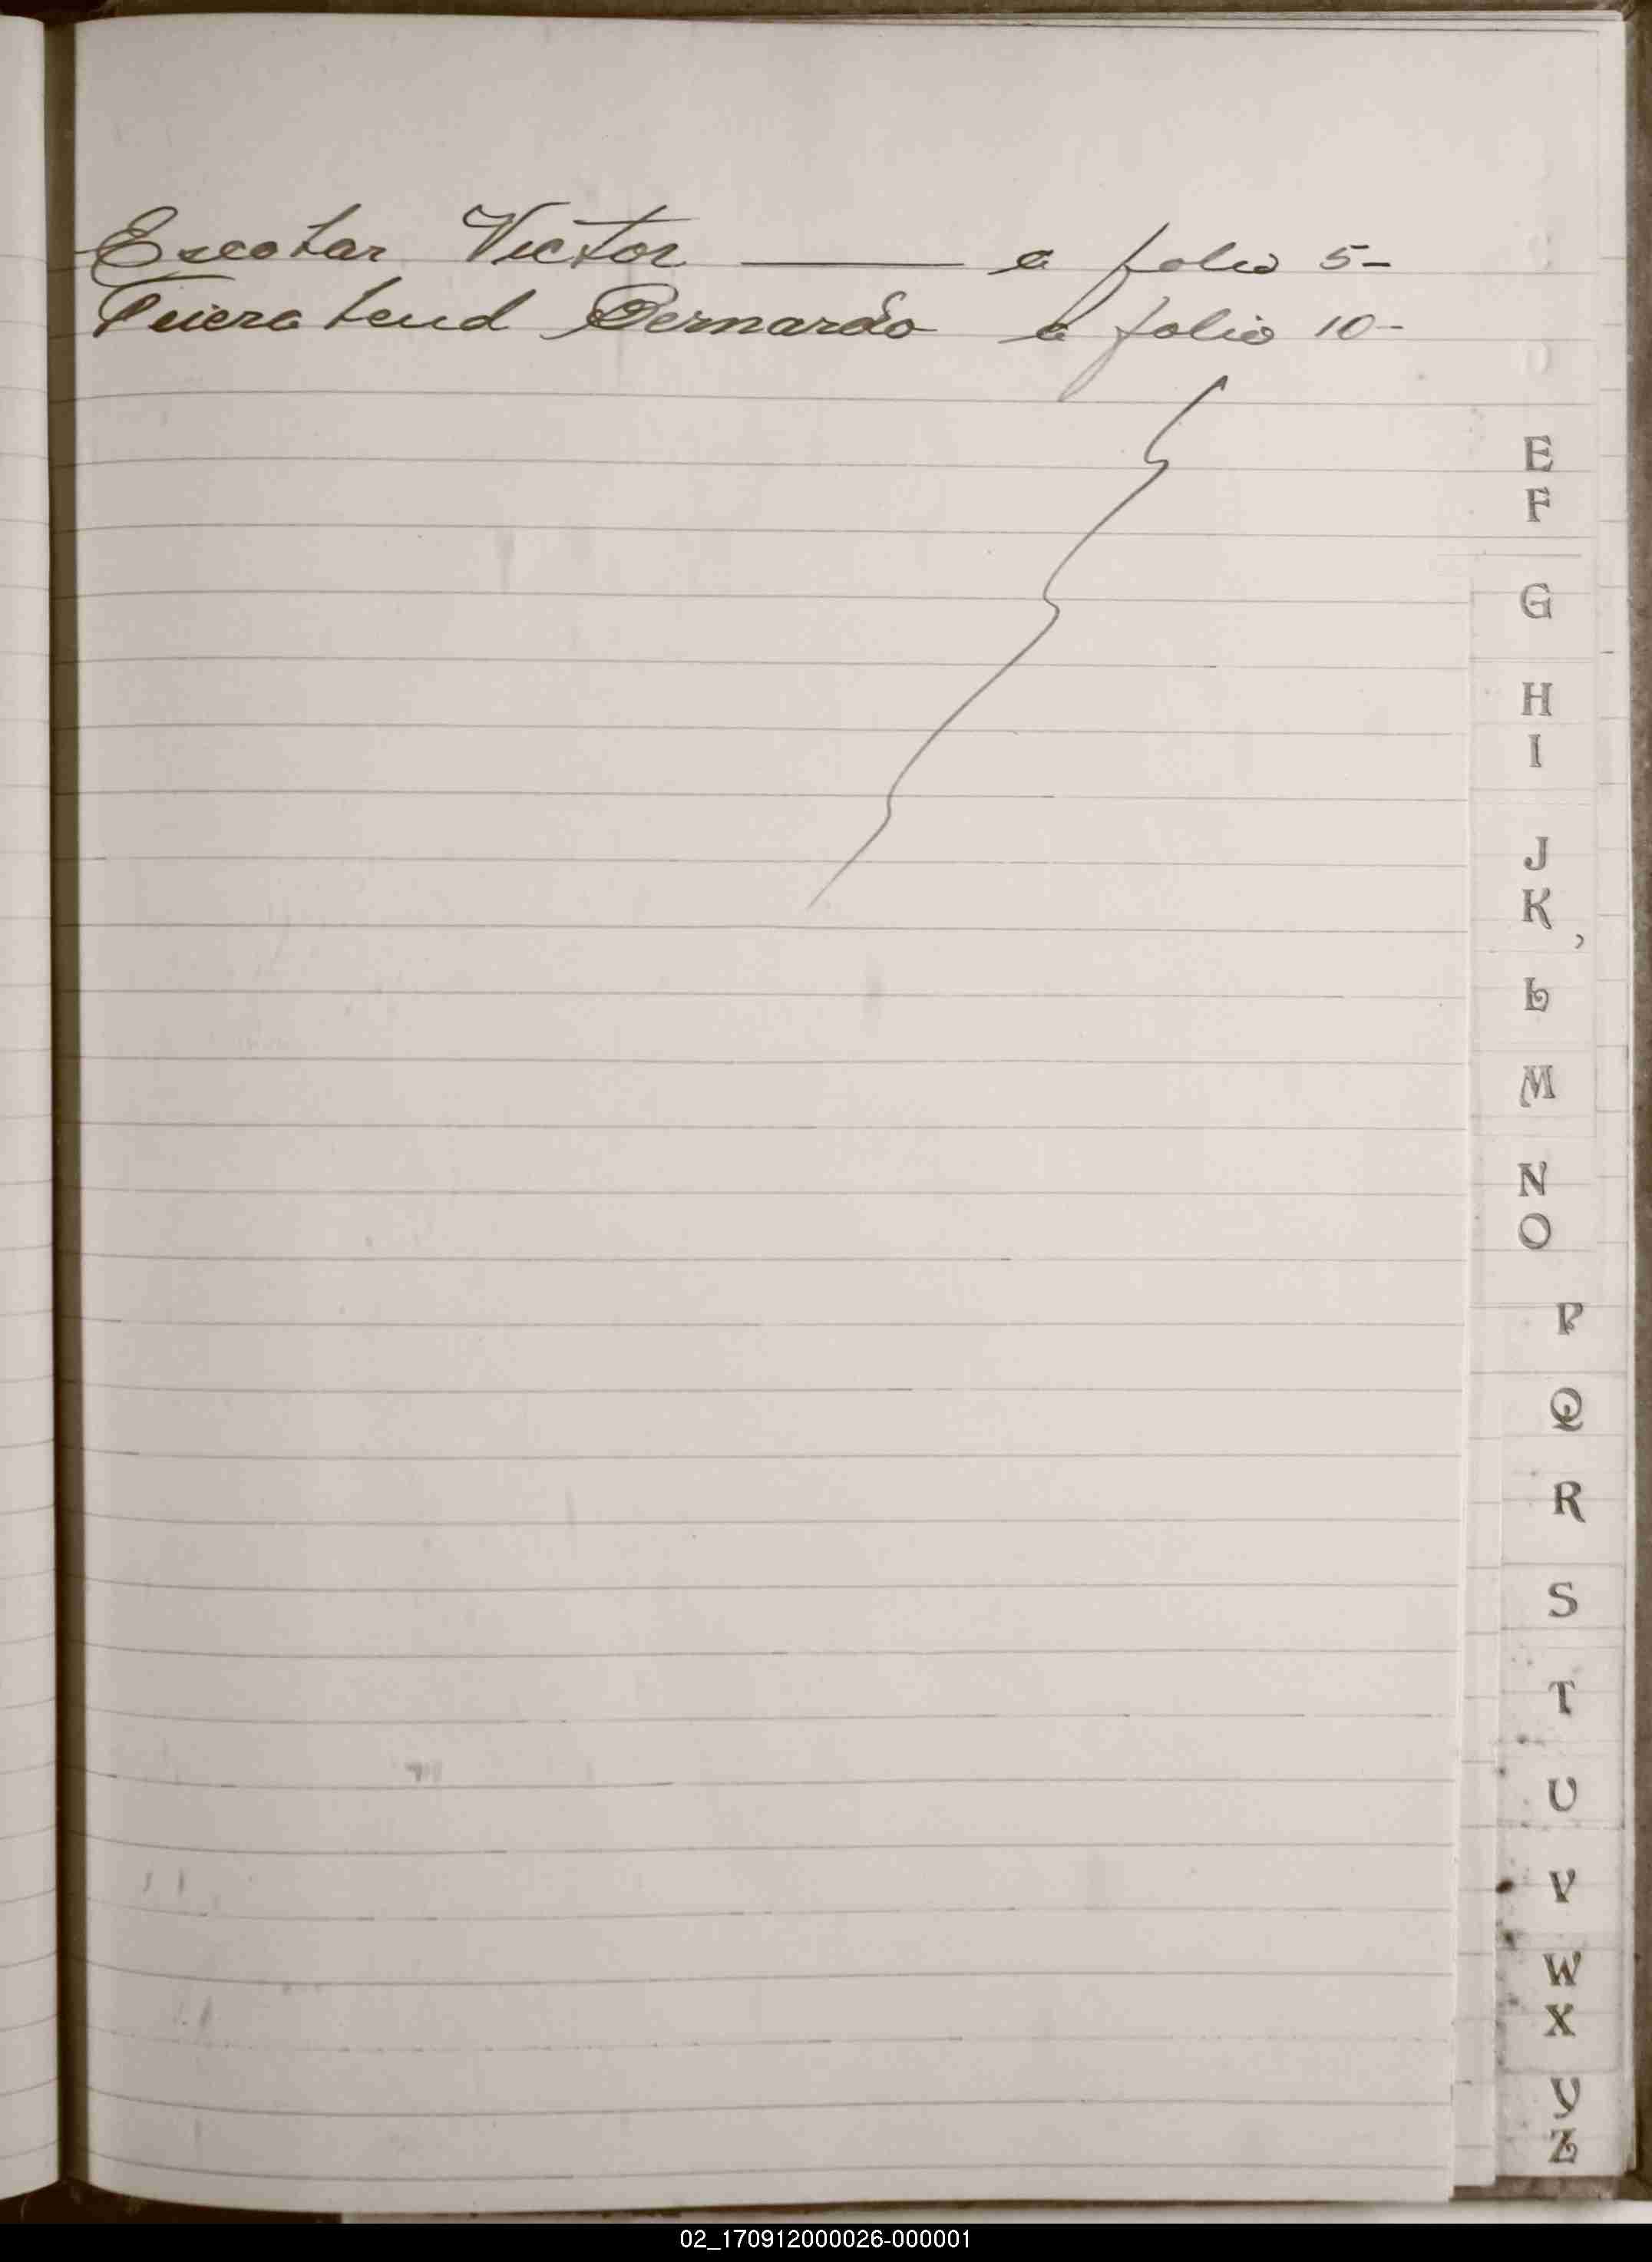 Escobar Victor ——— a folio 5-
Feierabend Bernardo a folio 10-
E
F
G
H
I
J
K
L
M
N
O
P
Q
R
S
T
U
V
W
X
Y
Z
02_170912000026-000001